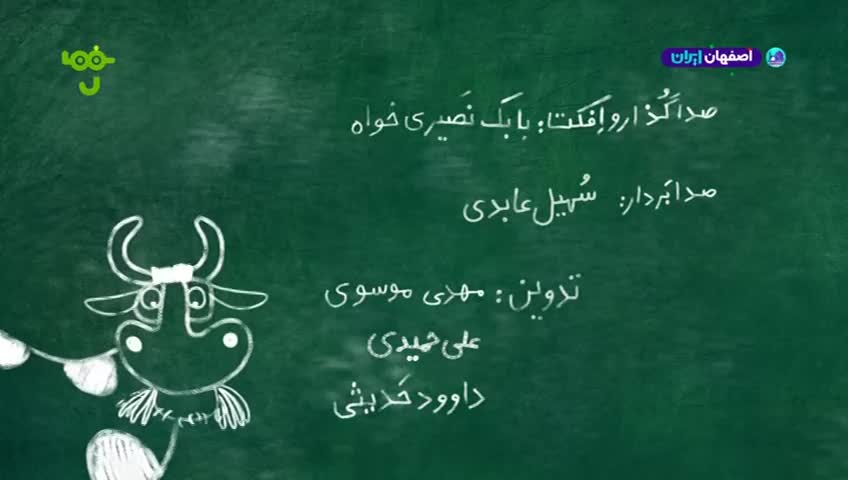 اصفهان ایران
صداگُذار و اِفِکت: بابَک نَصیری خواه
صدابَردار: سُهیل عابدی
تدوین: مهدی موسوی
علی حمیدی
داوود حَدیثی